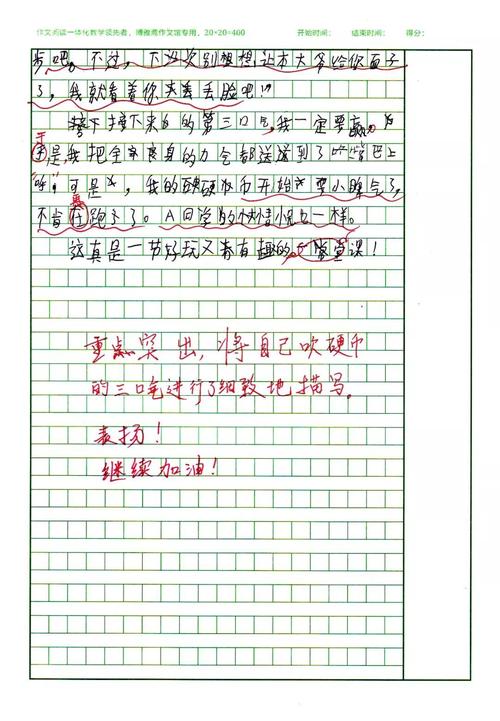 作文阅读一体化教学领先者，博雅苑作文馆专用，20×20=400 开始时间： 结束时间： 得分：
步吧。不过，下次别想想让本大爷给你面子
了，我就看着你来丢丢脸吧！
接下接下来的第三口气，我一定要赢。
于是我把全身的力气都送送到了嘴巴上
可是，我的硬币开始耍小脾气了，
不肯再跑了。
这真是一节好玩又有趣的课！
重点突出，将自己吹硬币
的三口气进行了细致地描写。
表扬！
继续加油！